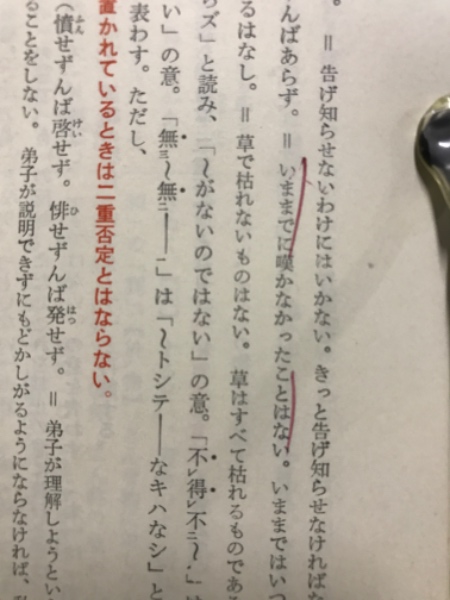 。＝告げ知らせないわけにはいかない。きっと告げ知らせなければな
んばあらず。＝いままでに嘆かなかったことはない。いままではいつ
るはなし。＝草で枯れないものはない。草はすべて枯れるものであ
らズ」と読み、「〜がないのではない」の意。「不レ得レ不ニ〜。」は
い」の意。「無ニ〜無ニ――一」は「〜トシテ――なキハなシ」と
表わす。ただし、
置かれているときは二重否定とはならない。
（憤せずんば啓せず。悱せずんば発せず。＝弟子が理解しようとい
ることをしない。弟子が説明できずにもどかしがるようにならなければ、